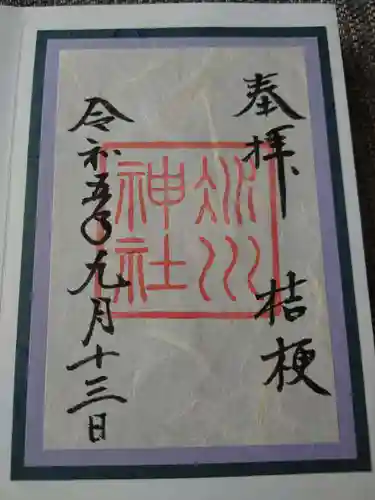 奉拝
桔梗
氷川
神社
令和五年九月十三日